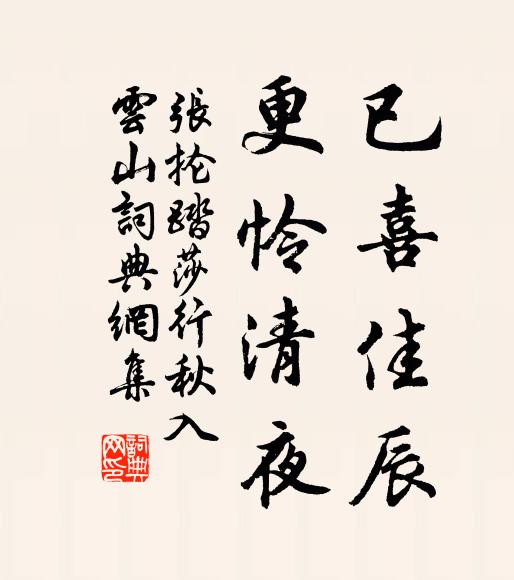 已喜佳辰
更怜清夜
張抡踏莎行秋入
雲山詞典網集
詞典
网印